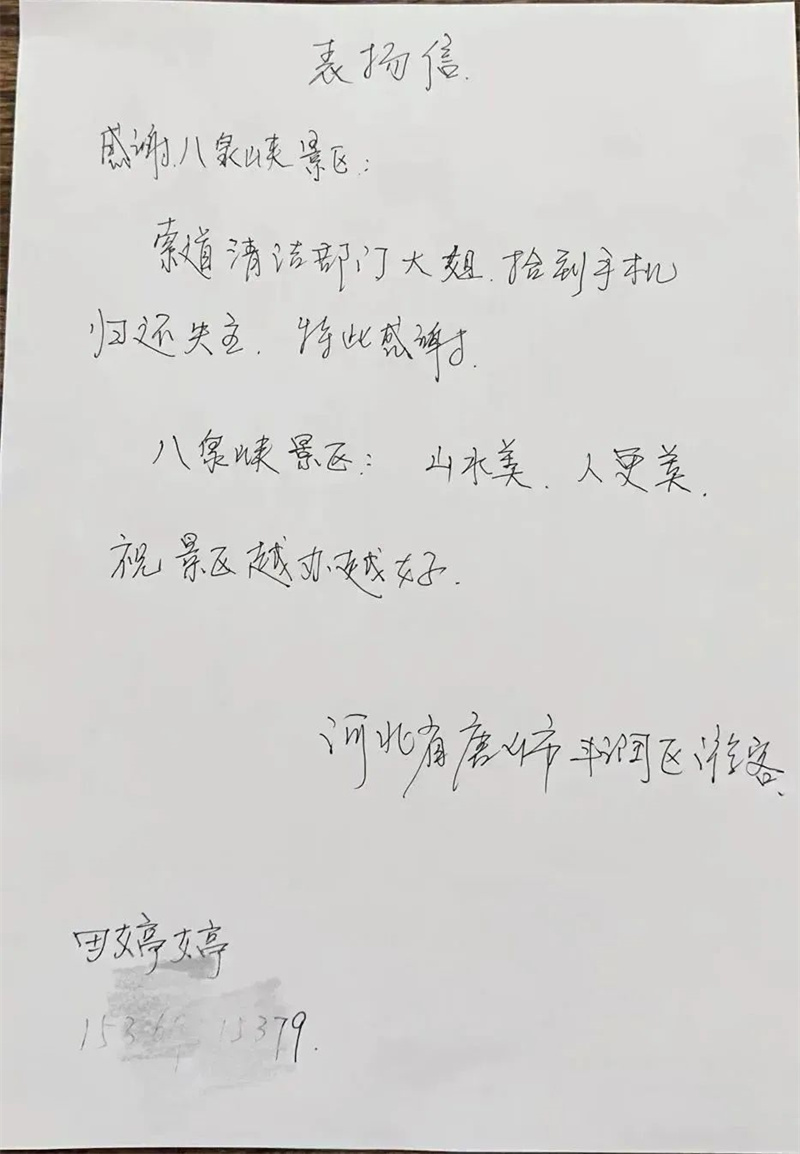 表扬信.
感谢八泉峡景区:
索道清洁部门大姐.拾到手机
归还失主.特此感谢.
八泉峡景区:山水美.人更美.
祝景区越办越好.
河北省唐山市丰润区游客.
田婷婷